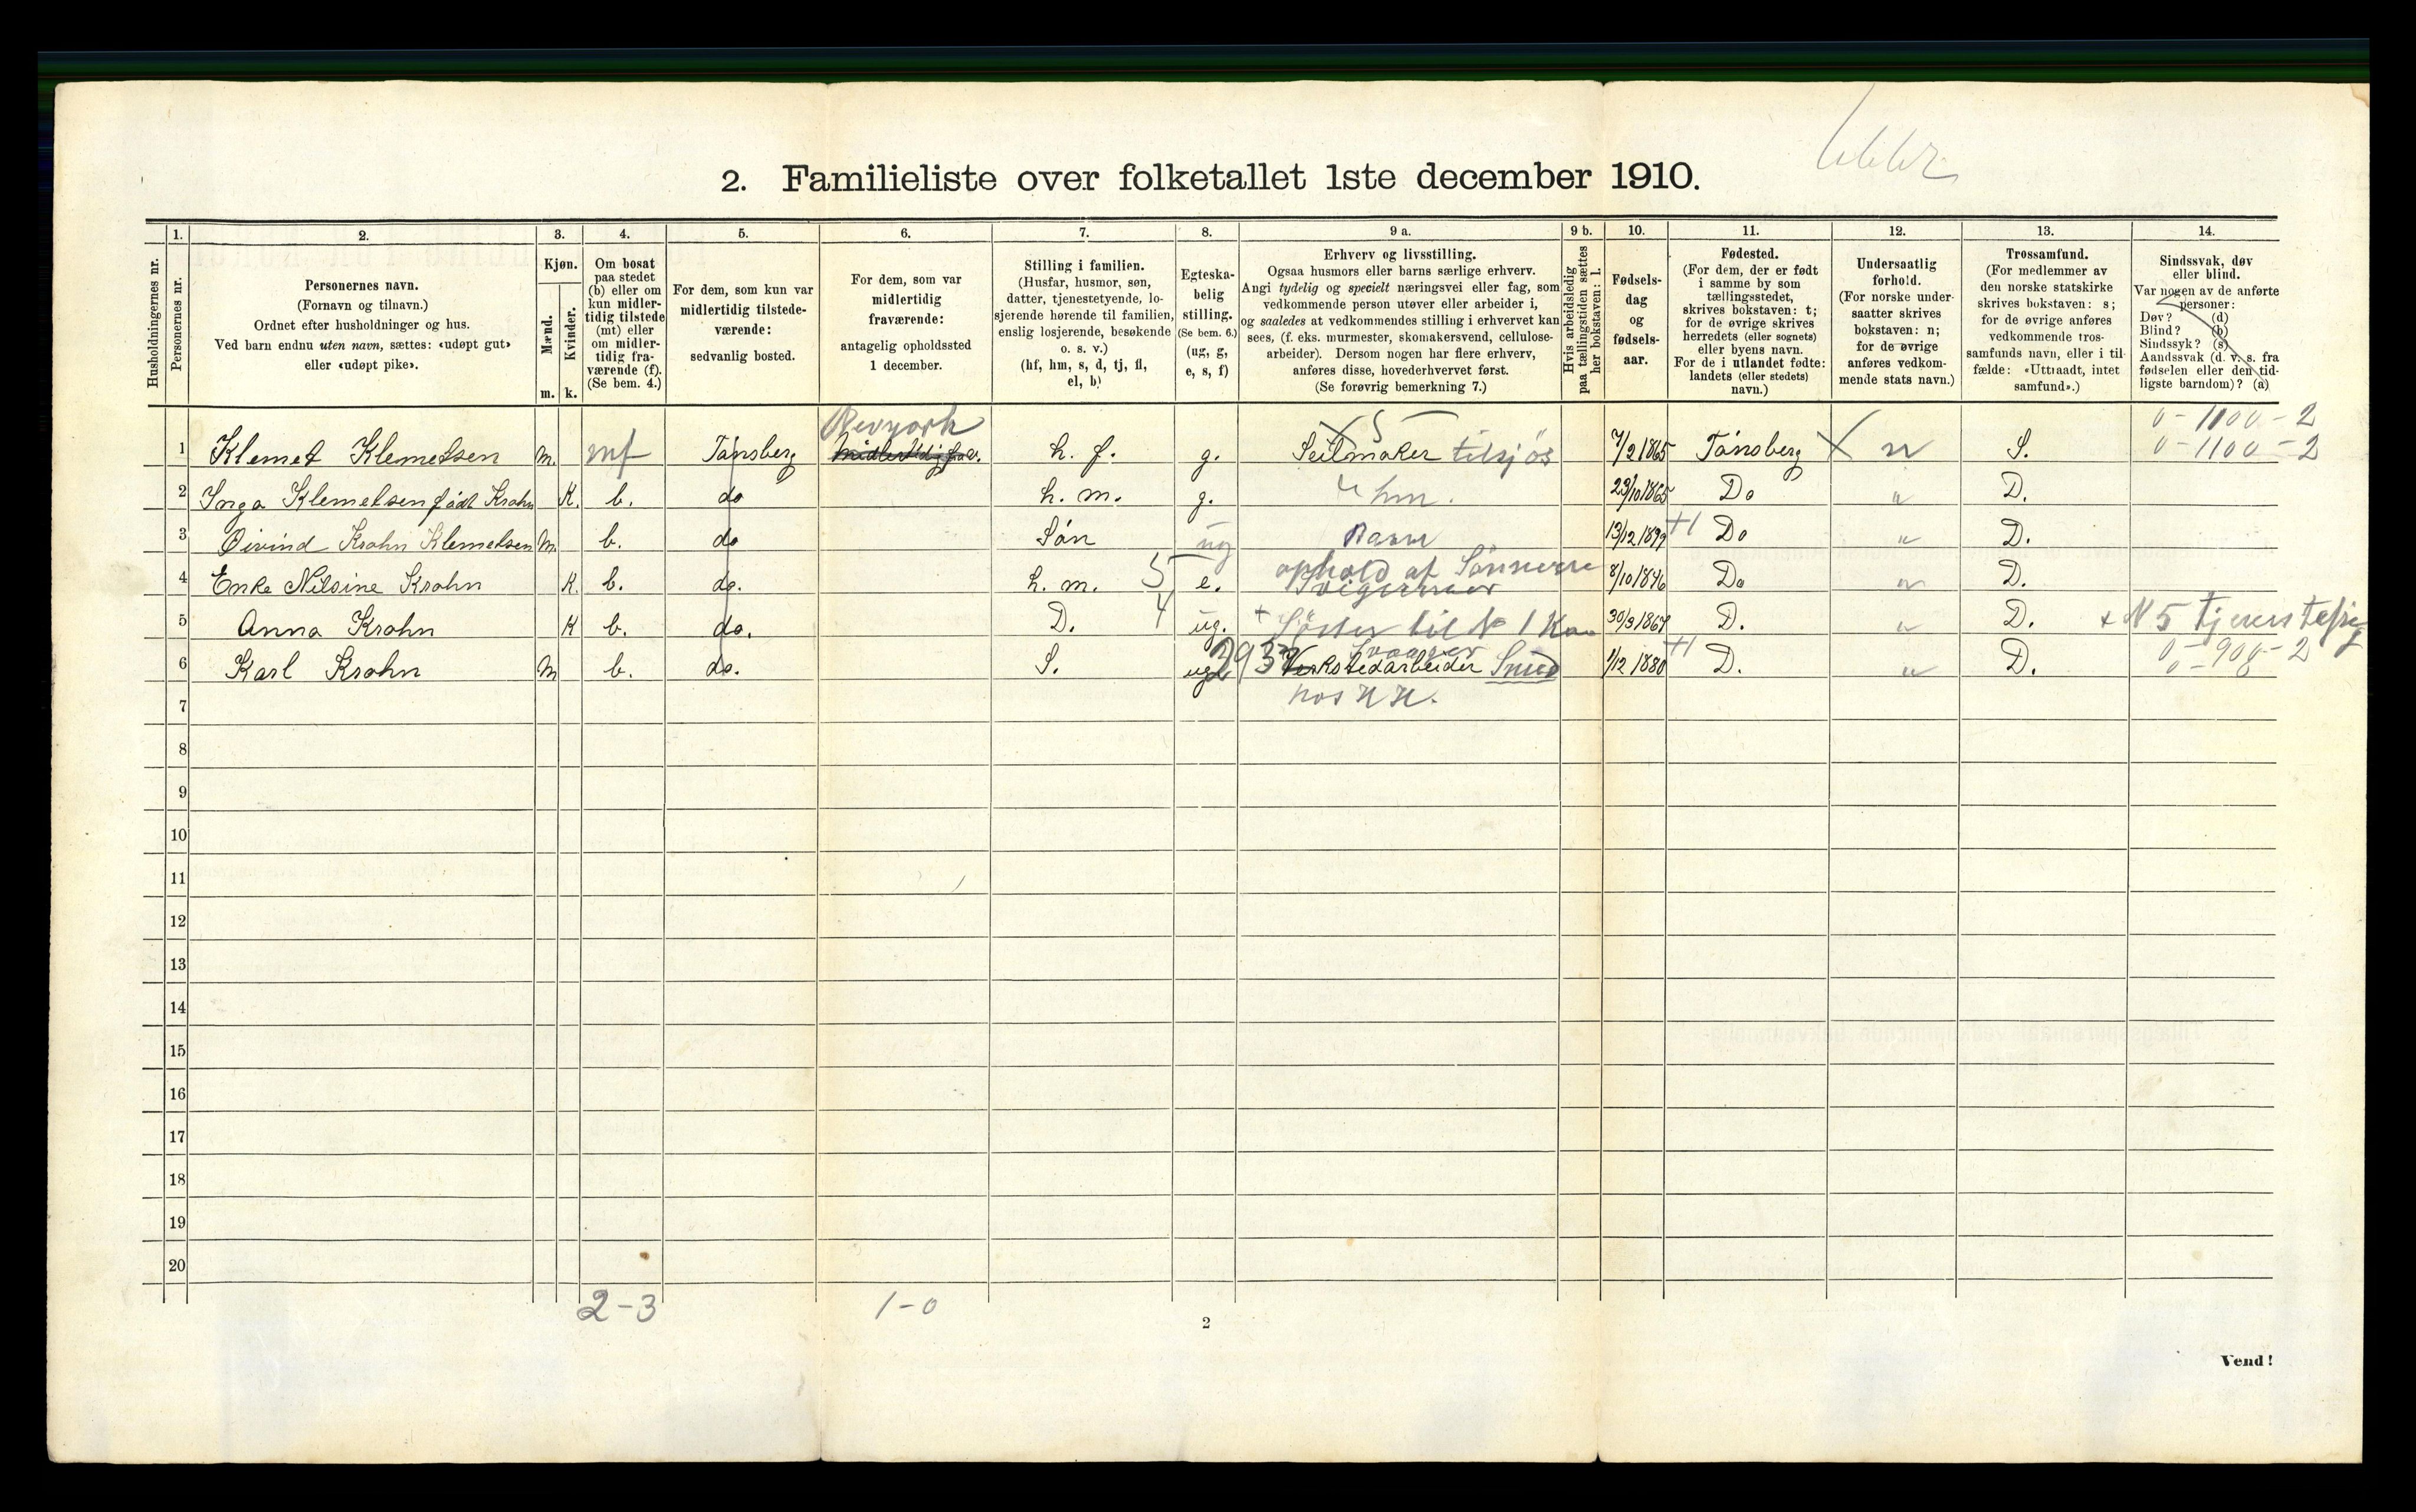 2. Familieliste over folketallet 1ste december 1910.
Husholdningernes nr.
1.
Personernes nr.
2.
Personernes navn.
(Fornavn og tilnavn.)
Ordnet efter husholdninger og hus.
Ved barn endnu uten navn, sættes: «udøpt gut»
eller «udøpt pike».
3.
Kjøn.
Mænd.
Kvinder.
m. k.
4.
Om bosat
paa stedet
(b) eller om
kun midler-
tidig tilstede
(mt) eller
om midler-
tidig fra-
værende (f).
(Se bem. 4.)
5.
For dem, som kun var
midlertidig tilstede-
værende:
sedvanlig bosted.
6.
For dem, som var
midlertidig
fraværende:
antagelig opholdssted
1 december.
7.
Stilling i familien.
(Husfar, husmor, søn,
datter, tjenestetyende, lo-
sjerende hørende til familien,
enslig losjerende, besøkende
o. s. v.)
(hf, hm, s, d, tj, fl,
el, b)
8.
Egteska-
belig
stilling.
(Se bem. 6.)
(ug, g,
e, s, f)
9 a.
Erhverv og livsstilling.
Ogsaa husmors eller barns særlige erhverv.
Angi tydelig og specielt næringsvei eller fag, som
vedkommende person utøver eller arbeider i,
og saaledes at vedkommendes stilling i erhvervet kan
sees, (f. eks. murmester, skomakersvend, cellulose-
arbeider). Dersom nogen har flere erhverv,
anføres disse, hovederhvervet først.
(Se forøvrig bemerkning 7.)
9 b.
Hvis arbeidsledig
paa tællingstiden sættes
her bokstaven: l.
10.
Fødsels-
dag
og
fødsels-
aar.
11.
Fødested.
(For dem, der er født
i samme by som
tællingsstedet,
skrives bokstaven: t;
for de øvrige skrives
herredets (eller sognets)
eller byens navn.
For de i utlandet fødte:
landets (eller stedets)
navn.)
12.
Undersaatlig
forhold.
(For norske under-
saatter skrives
bokstaven: n;
for de øvrige
anføres vedkom-
mende stats navn.)
13.
Trossamfund.
(For medlemmer av
den norske statskirke
skrives bokstaven: s;
for de øvrige anføres
vedkommende tros-
samfunds navn, eller i til-
fælde: «Uttraadt, intet
samfund».)
14.
Sindssvak, døv
eller blind.
Var nogen av de anførte
personer:
Døv? (d)
Blind? (b)
Sindssyk? (s)
Aandssvak (d. v. s. fra
fødselen eller den tid-
ligste barndom)? (a)
Newyork 5 0 - 1100 - 2
1 Klemet Klemetsen m. mf Tønsberg h. f. g. Seilmaker tilsjøs 7/2 1865 Tønsberg X n S. 0 - 1100 - 2
2 Inga Klemetsen født Krohn K. b. do h. m. g. hm. 23/10 1865 Do " D.
3 Øivind Krohn Klemetsen M. b. do Søn ug Barn 13/12 1899 +1 Do " D.
4 Enke Nilsine Krohn K. b. do. h. m. 5 e. ophold af Sønnerne 8/10 1846 Do " D.
Svigermor
5 Anna Krohn K b. do. D. 4 ug. + Söster til N 1 Kone 30/3 1867 D. " D. + N 5
Svoger
6 Karl Krohn M b. do. S. ug 2932 Verkstedarbeider Smed 1/12 1880 +1 D. " D. 0 - 908 - 2
hos
7
8
9
10
11
12
13
14
15
16
17
18
19
20
2-3
1-0
2
Vend!